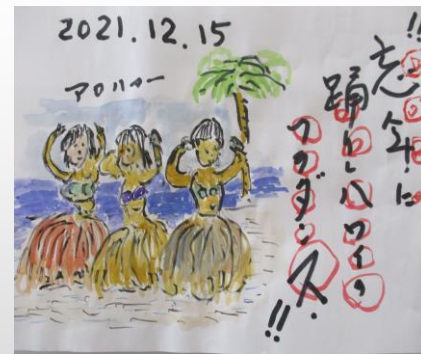 2021.12.15
アロハー
!!忘年に
踊 ハワイの
フラダンス.!!